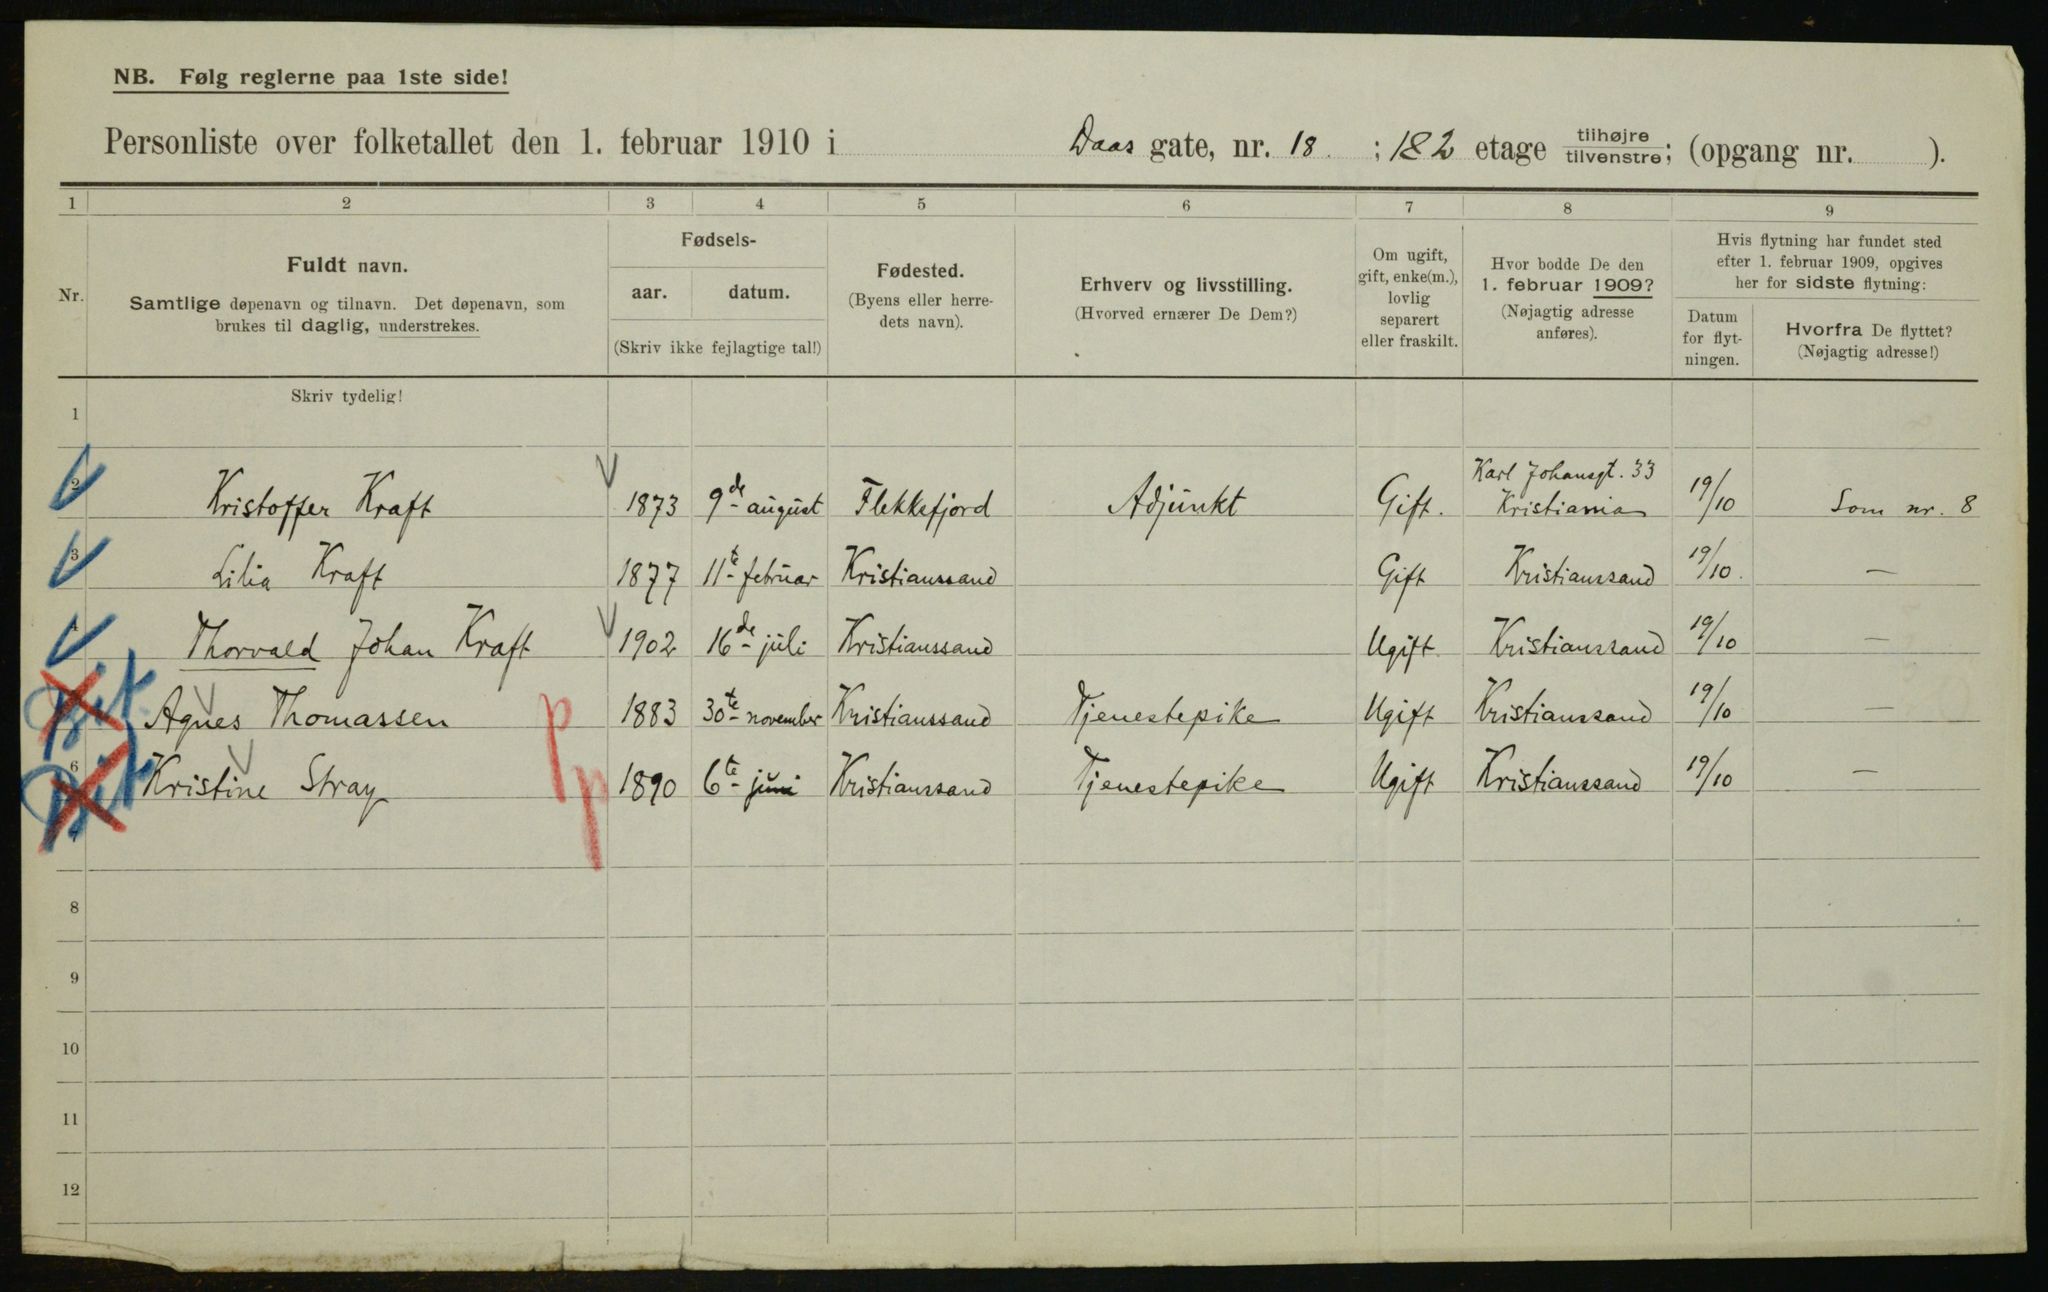 NB. Følg reglerne paa 1ste side!
Personliste over folketallet den 1. februar 1910 i Daas gate, nr. 18. ; 1&2 etage tilhøjre tilvenstre; (opgang nr. ).
1 2 3 4 5 6 7 8 9
Nr.
Fuldt navn.
Samtlige døpenavn og tilnavn. Det døpenavn, som
brukes til daglig, understrekes.
Fødsels-
aar. datum.
(Skriv ikke fejlagtige tal!)
Fødested.
(Byens eller herre-
dets navn).
Erhverv og livsstilling.
(Hvorved ernærer De Dem?)
Om ugift,
gift, enke(m.),
lovlig
separert
eller fraskilt.
Hvor bodde De den
1. februar 1909?
(Nøjagtig adresse
anføres).
Hvis flytning har fundet sted
efter 1. februar 1909, opgives
her for sidste flytning:
Datum
for flyt-
ningen.
Hvorfra De flyttet?
(Nøjagtig adresse!)
Skriv tydelig!
1
2 Kristoffer Kraft 1873 9de august Flekkefjord Adjunkt Gift. Karl Johansgt. 33 Kristiania 19/10 Som nr. 8
3 Lilia Kraft 1877 11te februar Kristianssand Gift Kristianssand 19/10. —
4 Thorvald Johan Kraft 1902 16de juli Kristianssand Ugift Kristianssand 19/10 —
Agnes Thomassen p 1883 30te november Kristianssand Tjenestepike Ugift Kristianssand 19/10 —
6 Kristine Stray p 1890 6te juni Kristianssand Tjenestepike Ugift Kristianssand 19/10 —
7
8
9
10
11
12